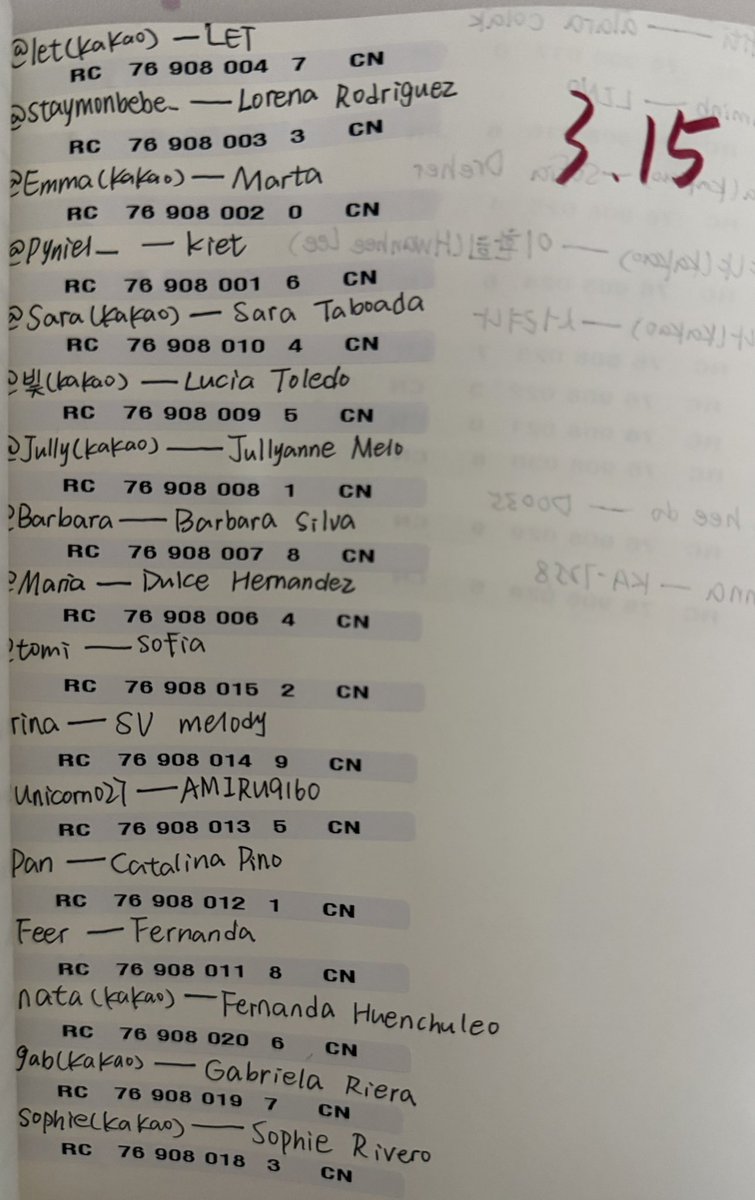 @let(kakao) — LET
RC 76 908 004 7 CN
@staymonbebe_ — Lorena Rodriguez
RC 76 908 003 3 CN
3.15
@Emma(kakao) — Marta
RC 76 908 002 0 CN
@pyniel_ — kiet
RC 76 908 001 6 CN
@Sara(kakao) — Sara Taboada
RC 76 908 010 4 CN
@빛(kakao) — Lucia Toledo
RC 76 908 009 5 CN
@Jully(kakao) — Jullyanne Melo
RC 76 908 008 1 CN
@Barbara — Barbara Silva
RC 76 908 007 8 CN
@Maria — Dulce Hernandez
RC 76 908 006 4 CN
@tomi — Sofia
RC 76 908 015 2 CN
rina — SV melody
RC 76 908 014 9 CN
Unicorn027 — AMIRU9160
RC 76 908 013 5 CN
Pan — Catalina Pino
RC 76 908 012 1 CN
Feer — Fernanda
RC 76 908 011 8 CN
nata(kakao) — Fernanda Huenchuleo
RC 76 908 020 6 CN
gab(kakao) — Gabriela Riera
RC 76 908 019 7 CN
Sophie(kakao) — Sophie Rivero
RC 76 908 018 3 CN